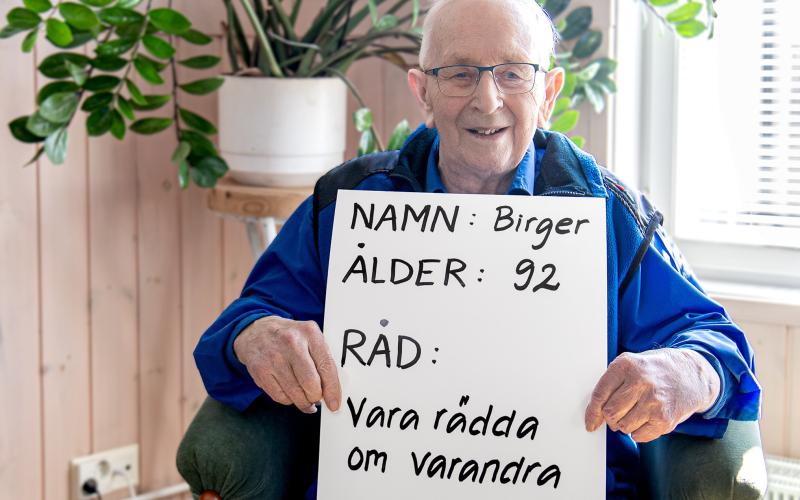 NAMN: Birger
ÅLDER: 92
RÅD:
Vara rädda
om varandra